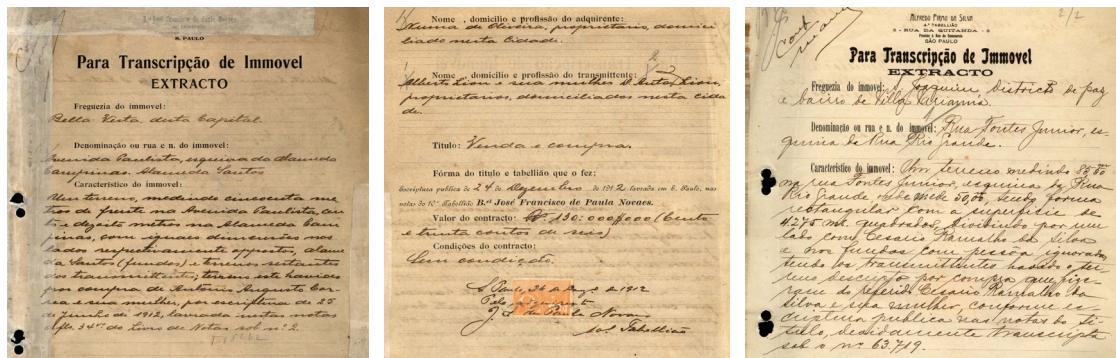 S. PAULO
Para Transcripção de Immovel
EXTRACTO
Freguezia do immovel:
Bella Vista, desta Capital.
Denominação ou rua e n. do immovel:
Avenida Paulista, esquina da Alameda
Campinas. Alameda Santos
Caracteristico do immovel:
Um terreno, medindo cincoenta me-
tros de frente na Avenida Paulista, cen-
to e dezoito metros na Alameda Cam-
pinas, com iguaes dimensões nos
lados respectivamente oppostos, alame-
da Santos (fundos) e terrenos restantes
dos transmittentes; terreno este havido
por compra de Antonio Augusto Cor-
rea e sua mulher, por escriptura de 25
de Junho de 1912, lavrada nestas notas
a fls. 34 do Livro de Notas sob nº 2.
Nome, domicilio e profissão do adquirente:
Numa de Oliveira, proprietario, domici-
liado nesta Cidade.
Nome, domicilio e profissão do transmittente:
Alberto Lion e sua mulher D. Lion,
proprietarios, domiciliados nesta cida-
de.
Titulo: Venda e compra.
Fórma do titulo e tabellião que o fez:
Escriptura publica de 24 de Dezembro de 1912 lavrada em S. Paulo, nas
notas do 10º Tabellião B.el José Francisco de Paula Novaes.
Valor do contracto: Rs 130:000$000 (Cento
e trinta contos de reis)
Condições do contracto:
Sem condição.
S. Paulo, de 1912
Pelo
J. Paula Novaes
Tabellião
ALFREDO FIRMO DA SILVA
4.º TABELLIÃO
RUA DA QUITANDA
SÃO PAULO
2/2
Para Transcripção de Immovel
EXTRACTO
Freguezia do immovel: S. Joaquim, districto de paz
e bairro de Villa Marianna.
Denominação ou rua e n. do immovel: Rua Fontes Junior, es-
quina da Rua Rio Grande.
Caracteristico do immovel: Um terreno medindo 85,50
na rua Fontes Junior, esquina da Rua
Rio Grande onde mede 50,00, tendo forma
rectangular com a superficie de
4275 m. quadrados, dividindo por um
lado com Cesario Ramalho da Silva
e nos fundos com pessôa ignorada,
tendo os transmittentes havido o ter-
reno descripto por compra que fize-
ram do referido Cesario Ramalho da
Silva e sua mulher, conforme es-
criptura publica nas notas do
titulo, devidamente transcripta
sob o nº 63.719.